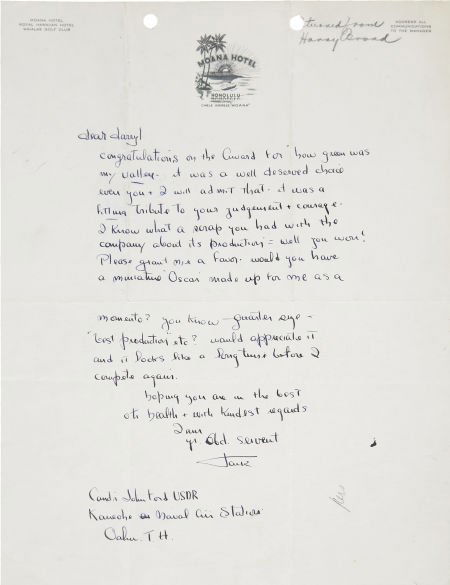 MOANA HOTEL
ROYAL HAWAIIAN HOTEL
WAIALAE GOLF CLUB
ADDRESS ALL
COMMUNICATIONS
TO THE MANAGER
Returned from
MOANA HOTEL
HONOLULU
CABLE ADDRESS "MOANA"
Dear Darryl
Congratulations on the Award for 'how green was
my valley. it was a well deserved choice
even you + I will admit that. it was a
fitting tribute to your judgement + courage.
I know what a scrap you had with the
company about its production = well you won!
Please grant me a favor. would you have
a miniature 'Oscar' made up for me as a
momento? you know - quarter size -
"best production" etc? would appreciate it
and it looks like a long time before I
compete again.
hoping you are in the best
of health + with kindest regards
I am
yr. Obd. servent
Comdr John Ford USNR
Kaneohe Naval Air Station
Oahu. T.H.